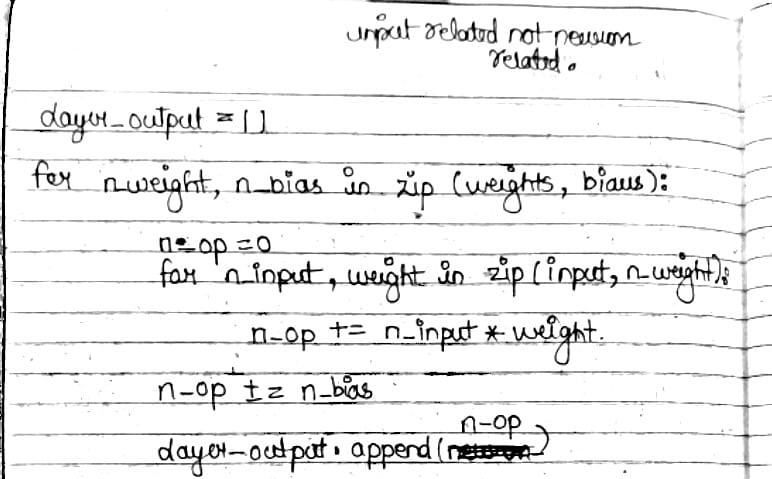 input related not neuron
related.
layer_output = []
for n_weight, n_bias in zip (weights, biases):
n_op = 0
for n_input, weight in zip (input, n_weight):
n_op += n_input * weight.
n_op += n_bias
n_op
layer_output.append( )